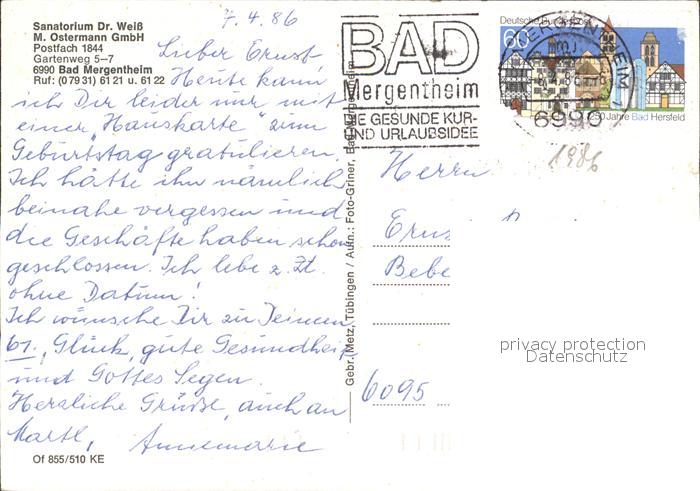 7.4.86
Sanatorium Dr. Weiß
M. Ostermann GmbH
Postfach 1844
Gartenweg 5–7
6990 Bad Mergentheim
Ruf: (07931) 6121 u. 6122
Lieber Ernst
Heute kann
ich Dir leider nur mit
einer „Hauskarte" zum
Geburtstag gratulieren.
Ich hätte ihn nämlich
beinahe vergessen und
die Geschäfte haben schon
geschlossen. Ich lebe z. Zt.
ohne Datum!
Ich wünsche Dir zu Deinem
61. Glück, gute Gesundheit
und Gottes Segen.
Herzliche Grüße, auch an
Martl, Annemarie
Of 855/510 KE
Gebr. Metz, Tübingen / Aufn.: Foto-Griner, Bad Mergentheim
BAD
Mergentheim
DIE GESUNDE KUR-
UND URLAUBSIDEE
MERGENTHEIM
6990
Deutsche Bundespost
60
1250 Jahre Bad Hersfeld
1986
Herrn
6095
privacy protection
Datenschutz